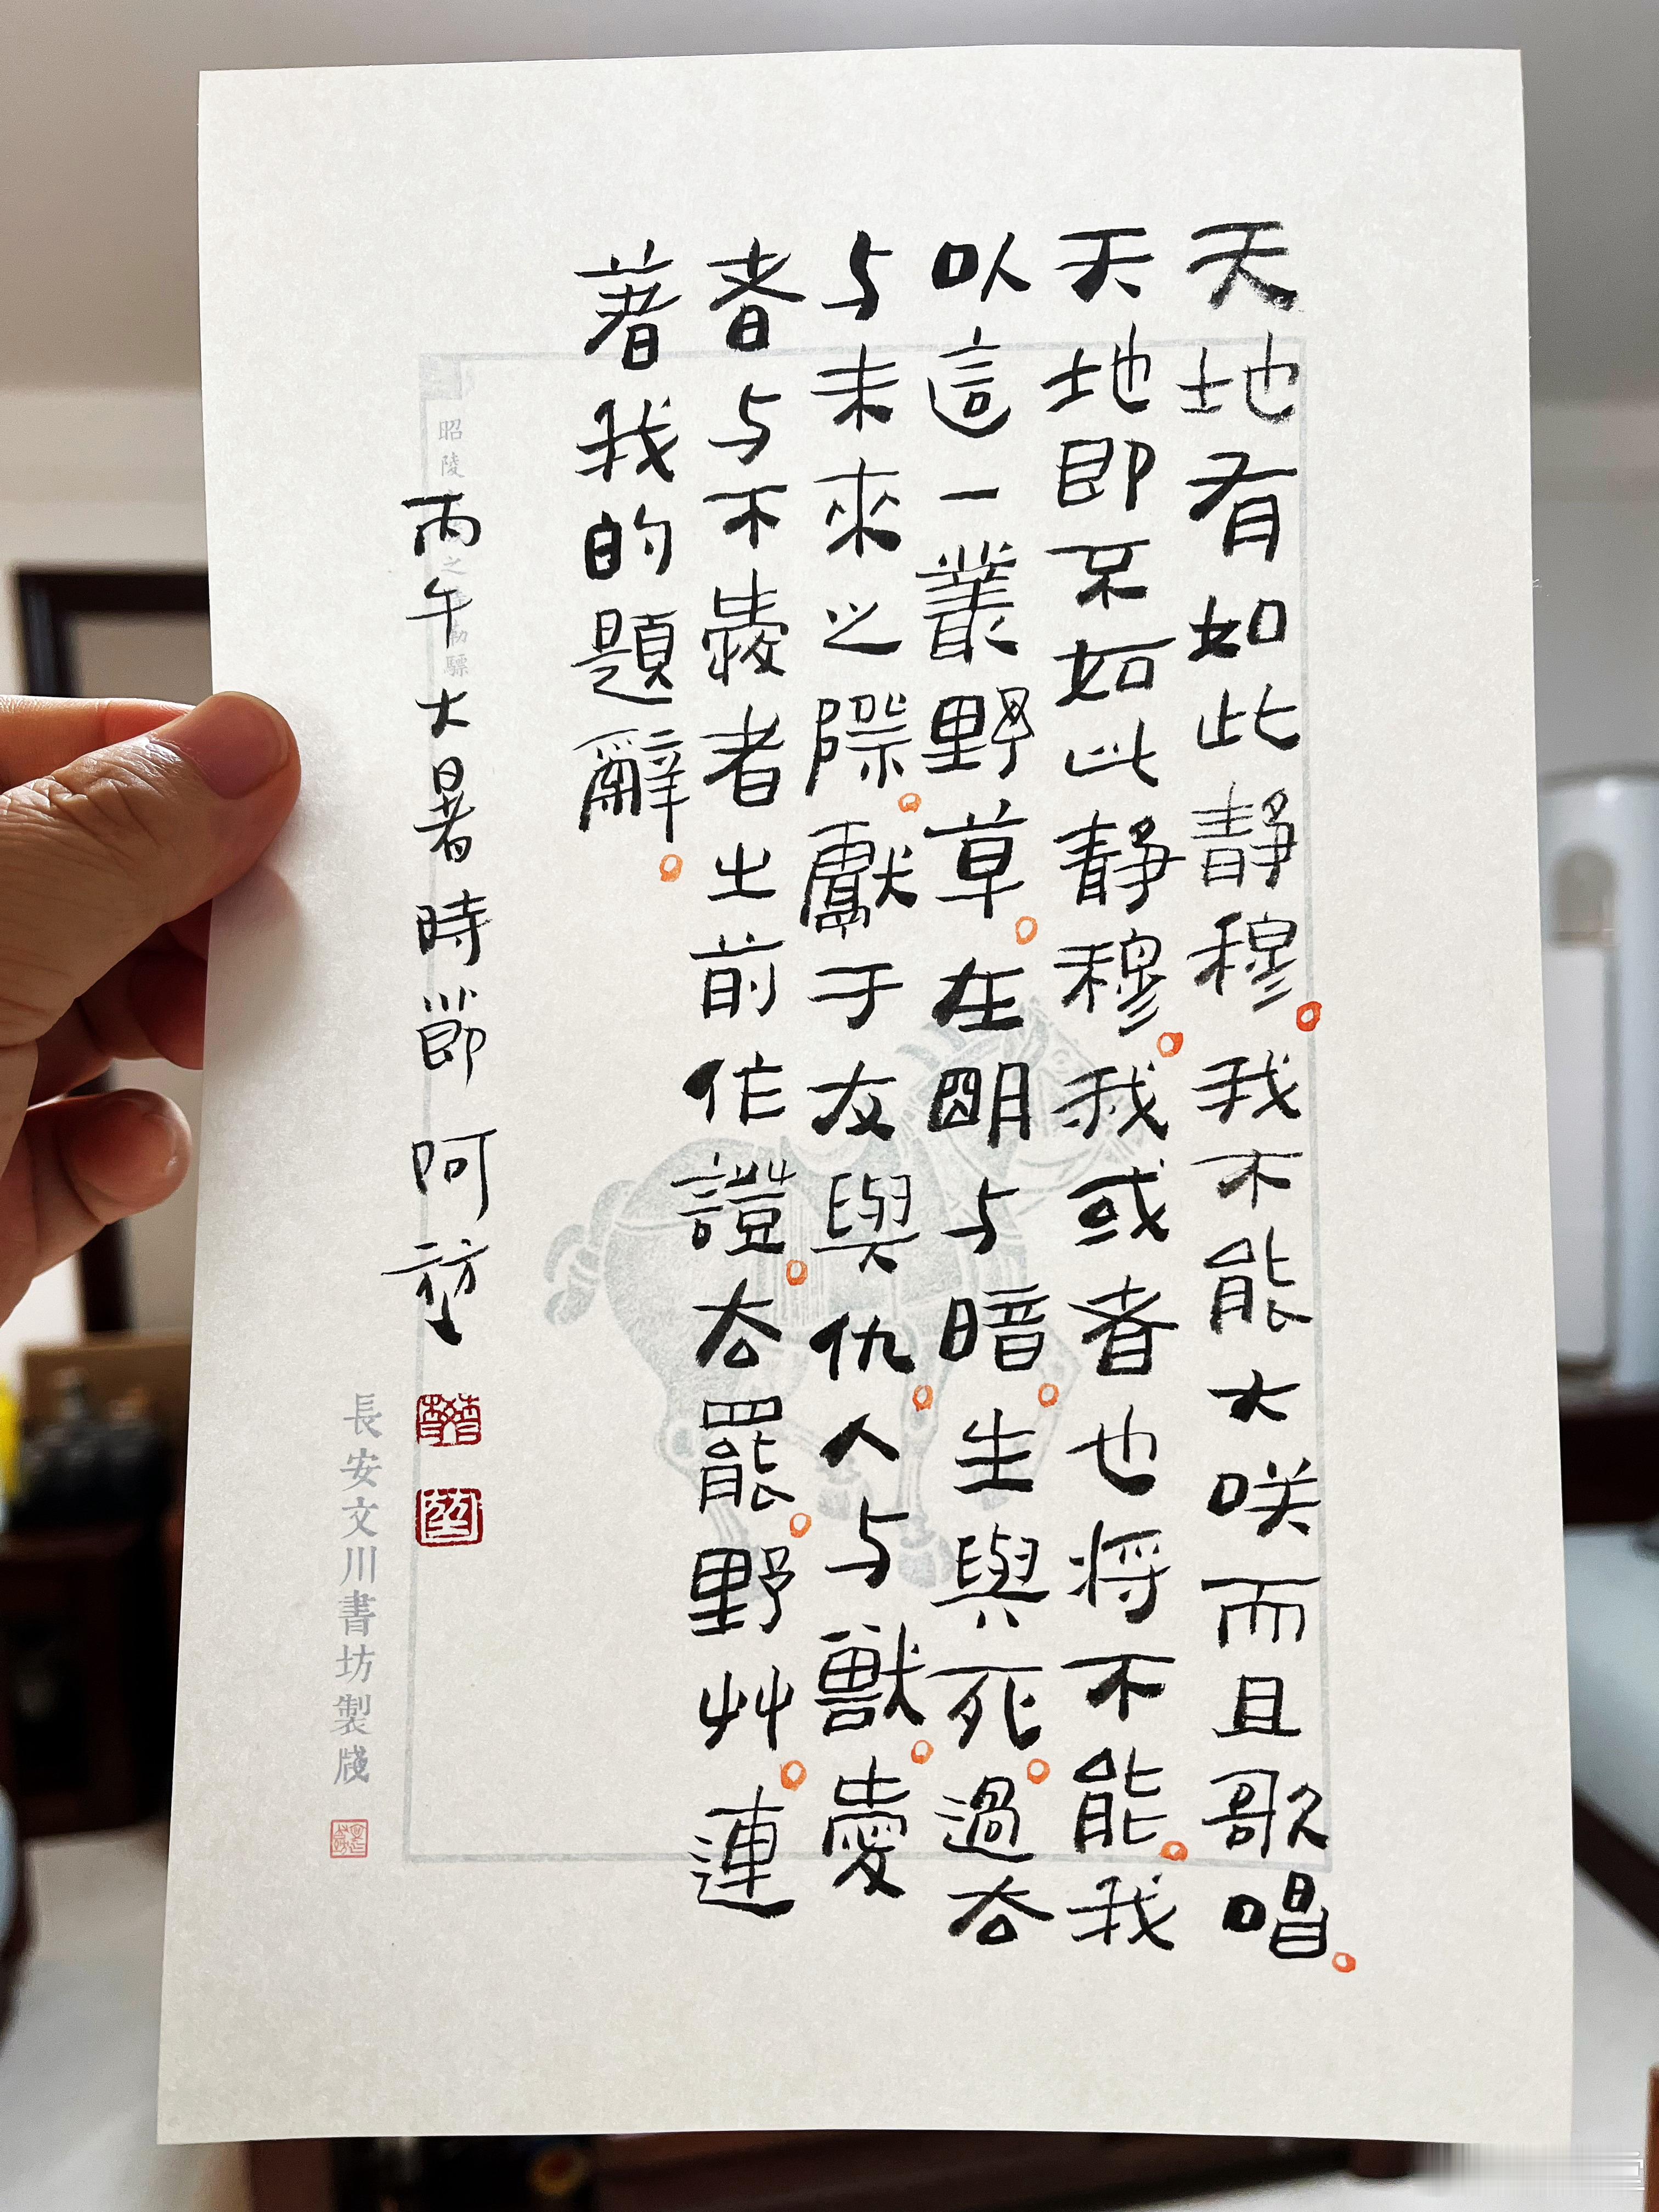 天地有如此靜穆。我不能大咲而且歌唱。
天地即不如此靜穆。我或者也将不能。我
以這一叢野草。在朙与暗。生與死。過去
与未來之際。獻于友與仇。人与獸。愛
者与不愛者之前作證。去罷。野艸。連
著我的題辭。
丙午大暑時節 阿
昭陵 之 勒驃
長安文川書坊製牋